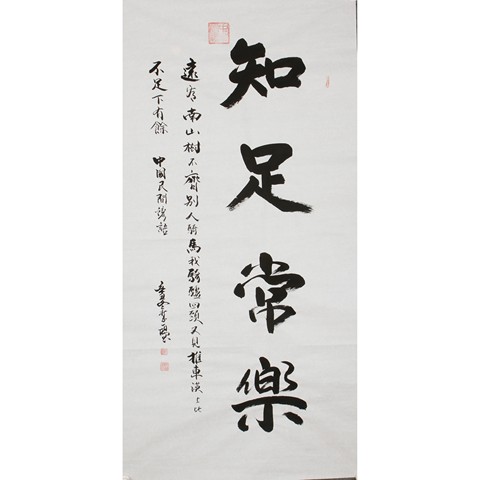 知足常樂
遠看南山樹不齊別人騎馬我騎驢回頭又見推車漢上比
不足下有餘 中國民間諺語